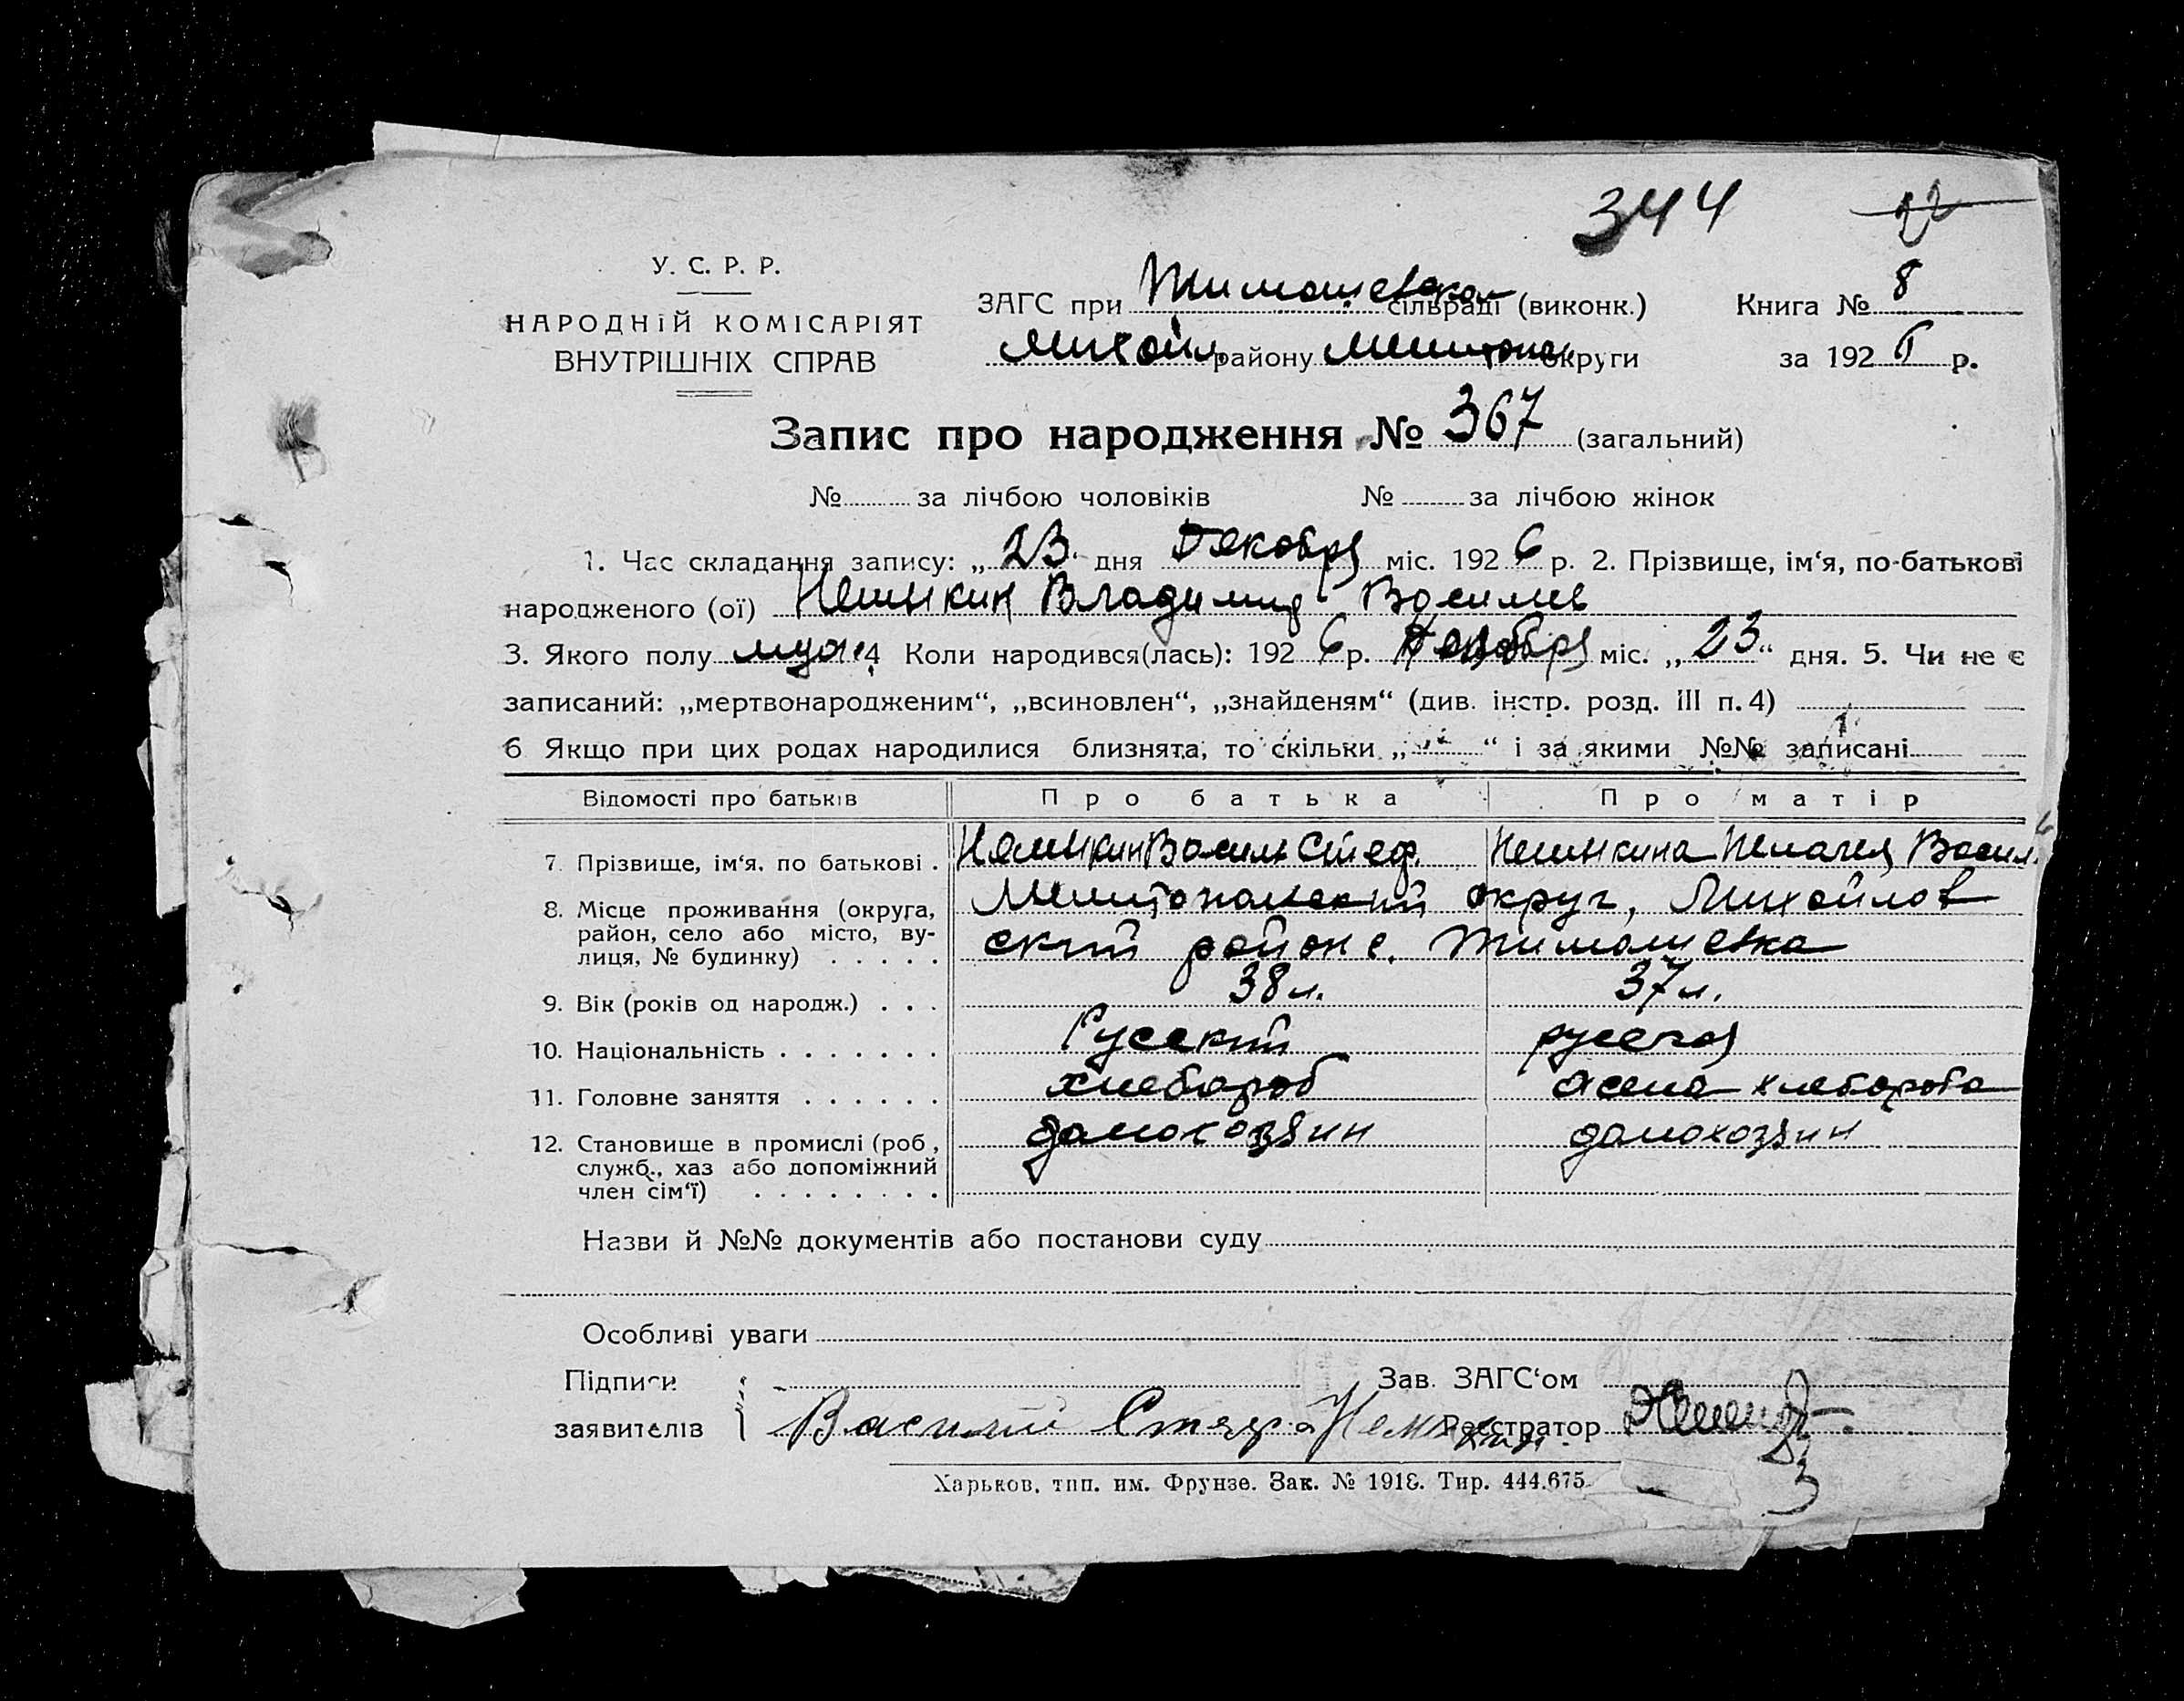 344
У. С. Р. Р.
НАРОДНІЙ КОМІСАРІЯТ
ВНУТРІШНІХ СПРАВ
ЗАГС при Тимошевской сільраді (виконк.) Книга № 8
Михайл району Мелитопол округи за 1926 р.
Запис про народження № 367 (загальний)
№ за лічбою чоловіків № за лічбою жінок
1. Час складання запису: „23“ дня Декабря міс. 1926 р. 2. Прізвище, ім‘я, по-батькові
народженого (ої) Немыкин Владимир Васильев
3. Якого полу муж. 4 Коли народився(лась): 1926 р. міс. „23“ дня. 5. Чи не є
записаний: „мертвонародженим“, „всиновлен“, „знайденям“ (див. інстр. розд. III п. 4)
6 Якщо при цих родах народилися близнята, то скільки „ “ і за якими №№ записані
Відомості про батьків Про батька Про матір
7. Прізвище, ім‘я, по батькові . Немыкин Василь Стеф. Немыкина Пелагея Васил.
8. Місце проживання (округа, Мелитопольский округ, Михайлов
район, село або місто, ву- ский район с. Тимошевка
лиця, № будинку) . . . . .
9. Вік (років од народж.) . . . 38 л. 37 л.
10. Національність . . . . . . . Русский русская
11. Головне заняття . . . . . . хлебороб жена хлебороба
12. Становище в промислі (роб, домохозяин домохозяин
служб., хаз або допоміжний
член сім‘ї) . . . . . . . .
Назви й №№ документів або постанови суду
Особливі уваги
Підписи Зав. ЗАГС‘ом
заявителів Василий Стеф Немыкин. Реєстратор
Харьков, тип. им. Фрунзе. Зак. № 1918. Тир. 444.675.